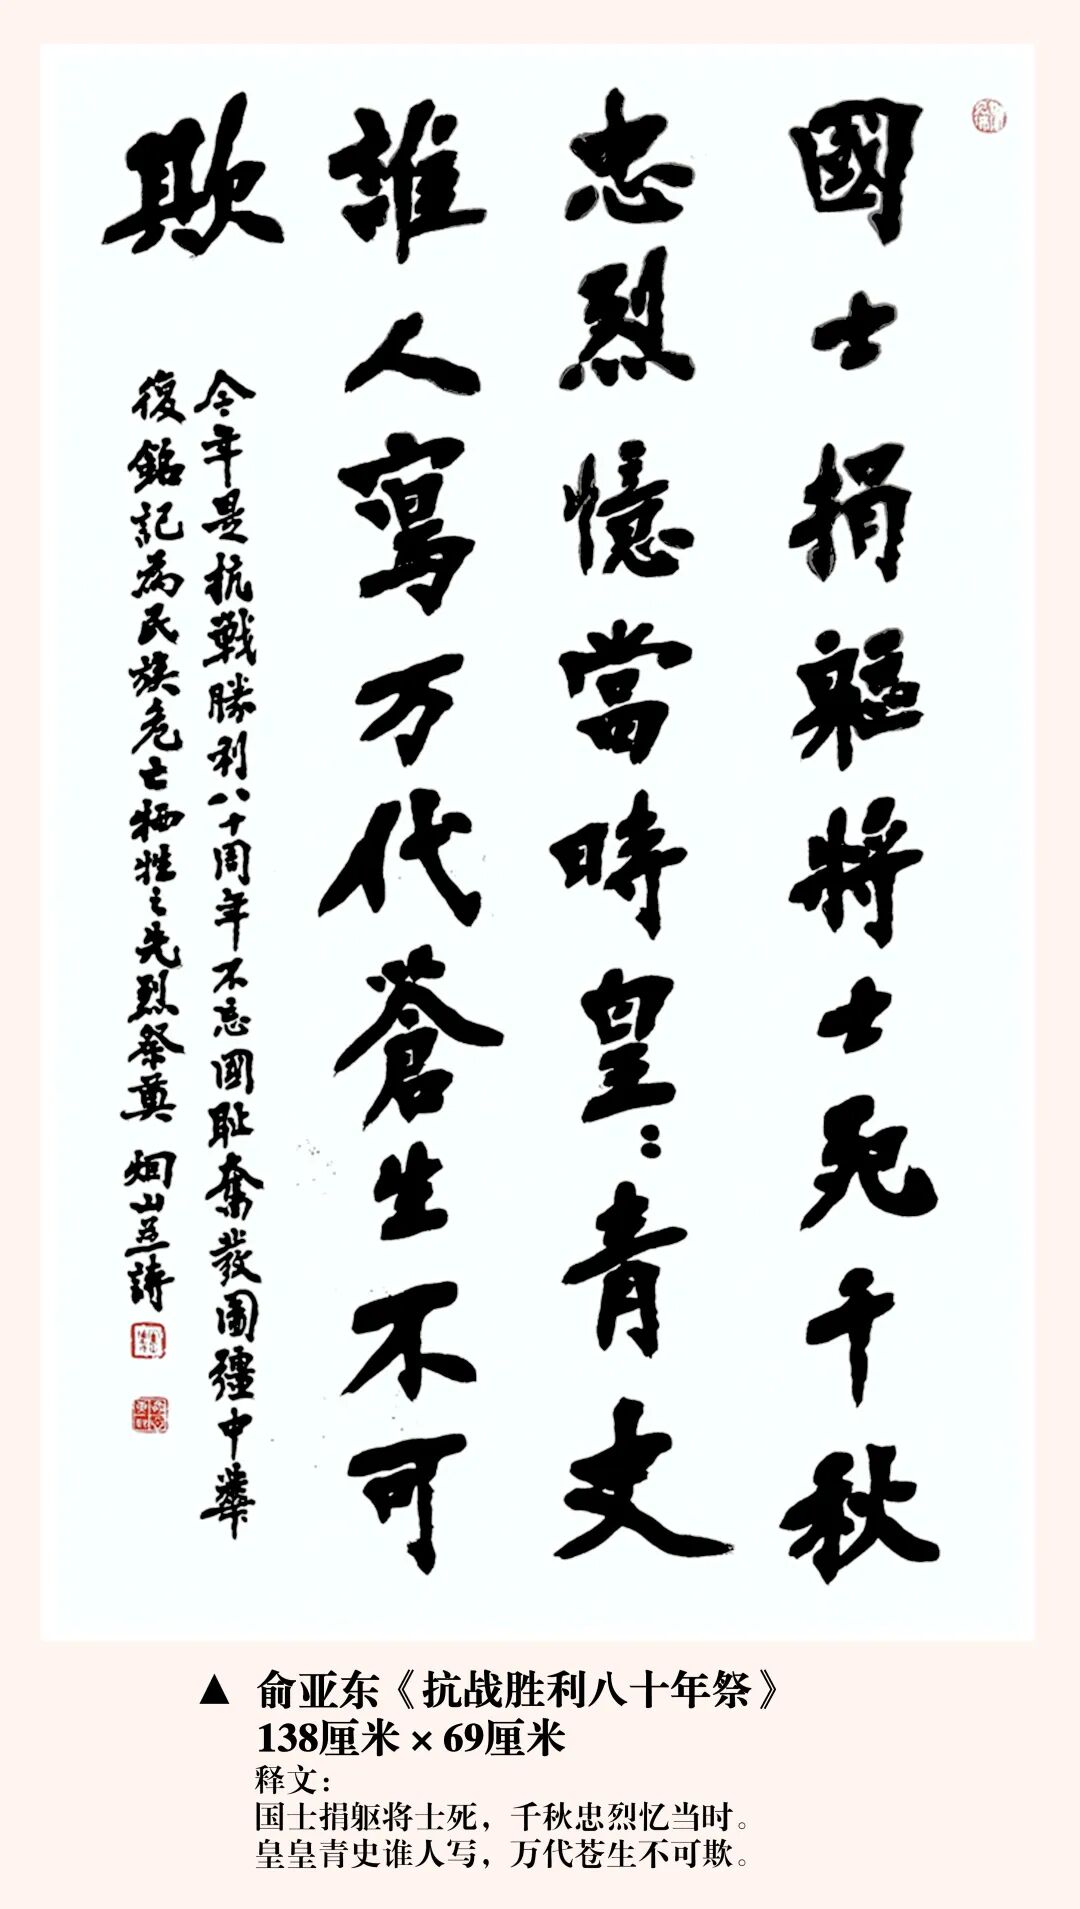 國士捐軀將士死千秋
忠烈憶當時皇：青史
誰人寫万代蒼生不可
欺
今年是抗戰勝利八十周年不忘國耻奮發圖疆中華
復銘記為民族危亡牺牲之先烈祭奠 烟山并詩
▲ 俞亚东《抗战胜利八十年祭》
138厘米 × 69厘米
释文：
国士捐躯将士死，千秋忠烈忆当时。
皇皇青史谁人写，万代苍生不可欺。